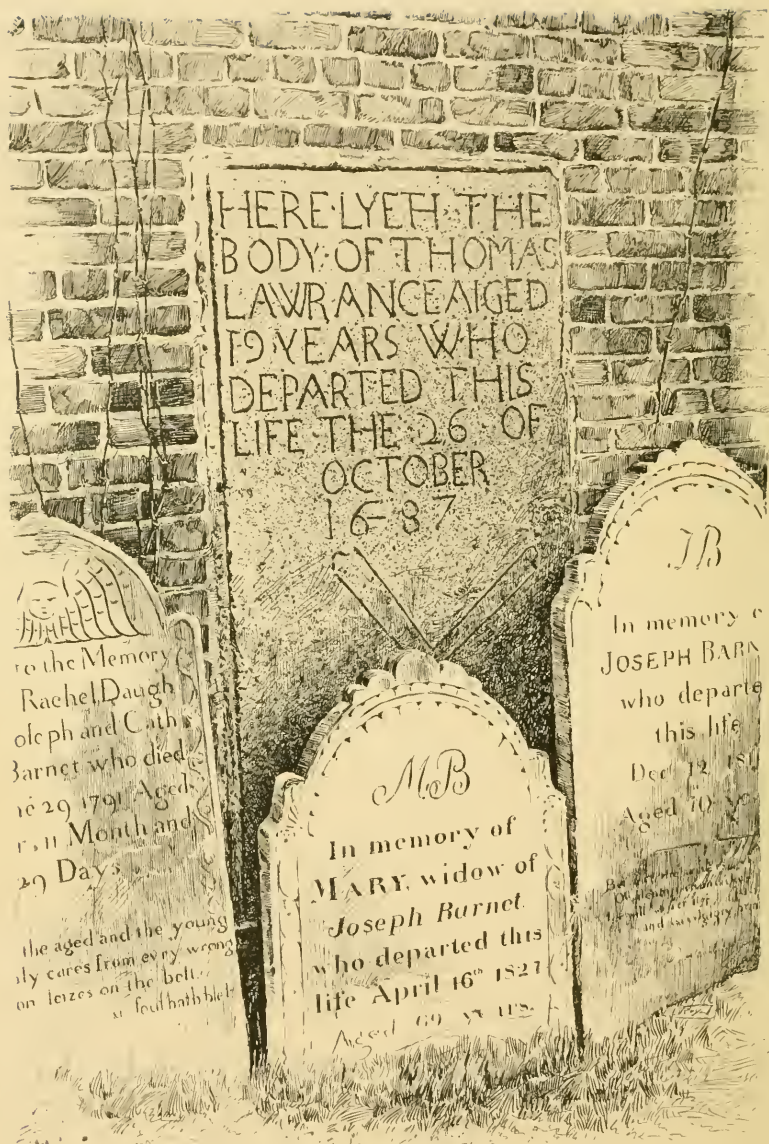 HERE·LYETH·THE
BODY·OF THOMAS
LAWRANCE AIGED
19·YEARS WHO
DEPARTED THIS
LIFE·THE 26 OF
OCTOBER
1687
to the Memory
Rachel Daugh
and Cath
Barnet who died
29 1791 Aged
11 Month and
29 Days
the aged and the young
cares from evry wrong
on the
hath
MB
In memory of
MARY, widow of
Joseph Burnet
who departed this
life April 16th 1827
Aged 69 years.
JB
In memory
JOSEPH BARN
who departe
this life
Dec 12
Aged